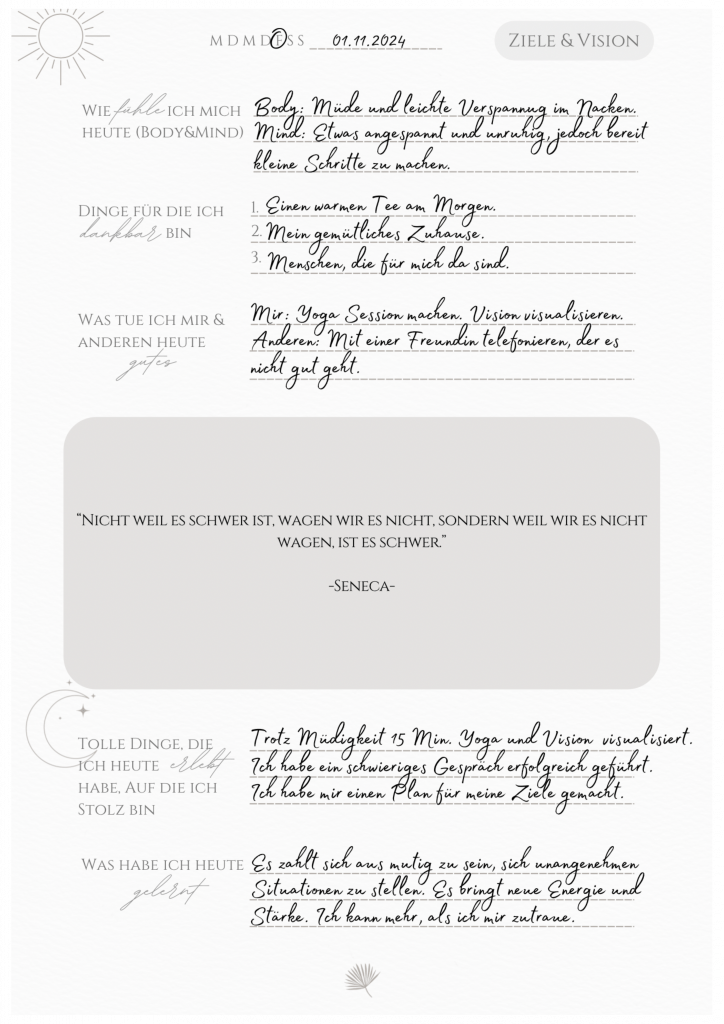 M D M D F S S 01.11.2024
ZIELE & VISION
WIE fühle ICH MICH
HEUTE (BODY&MIND)
Body: Müde und leichte Verspannug im Nacken.
Mind: Etwas angespannt und unruhig, jedoch bereit
kleine Schritte zu machen.
DINGE FÜR DIE ICH
dankbar BIN
1. Einen warmen Tee am Morgen.
2. Mein gemütliches Zuhause.
3. Menschen, die für mich da sind.
WAS TUE ICH MIR &
ANDEREN HEUTE
gutes
Mir: Yoga Session machen. Vision visualisieren.
Anderen: Mit einer Freundin telefonieren, der es
nicht gut geht.
“NICHT WEIL ES SCHWER IST, WAGEN WIR ES NICHT, SONDERN WEIL WIR ES NICHT
WAGEN, IST ES SCHWER.”
-SENECA-
TOLLE DINGE, DIE
ICH HEUTE erlebt
HABE, AUF DIE ICH
STOLZ BIN
Trotz Müdigkeit 15 Min. Yoga und Vision visualisiert.
Ich habe ein schwieriges Gespräch erfolgreich geführt.
Ich habe mir einen Plan für meine Ziele gemacht.
WAS HABE ICH HEUTE
gelernt
Es zahlt sich aus mutig zu sein, sich unangenehmen
Situationen zu stellen. Es bringt neue Energie und
Stärke. Ich kann mehr, als ich mir zutraue.